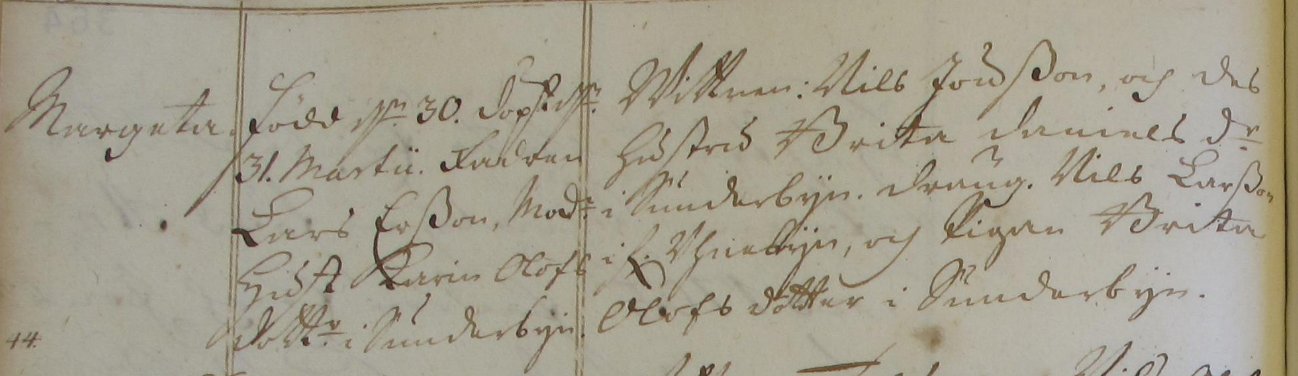 Margeta.
född dn 30. döpt dn
31. Martii. Fadren
Lars Ersson, Modr
Hust Karin Olofs
dottr. i Sunderbyn.
Wittnen: Nils Jönsson, och des
hustru Brita Daniels dr
i Sunderbyn. dräng. Nils Larsson
i och Pigan Brita
Olofs dotter i Sunderbyn.
44.